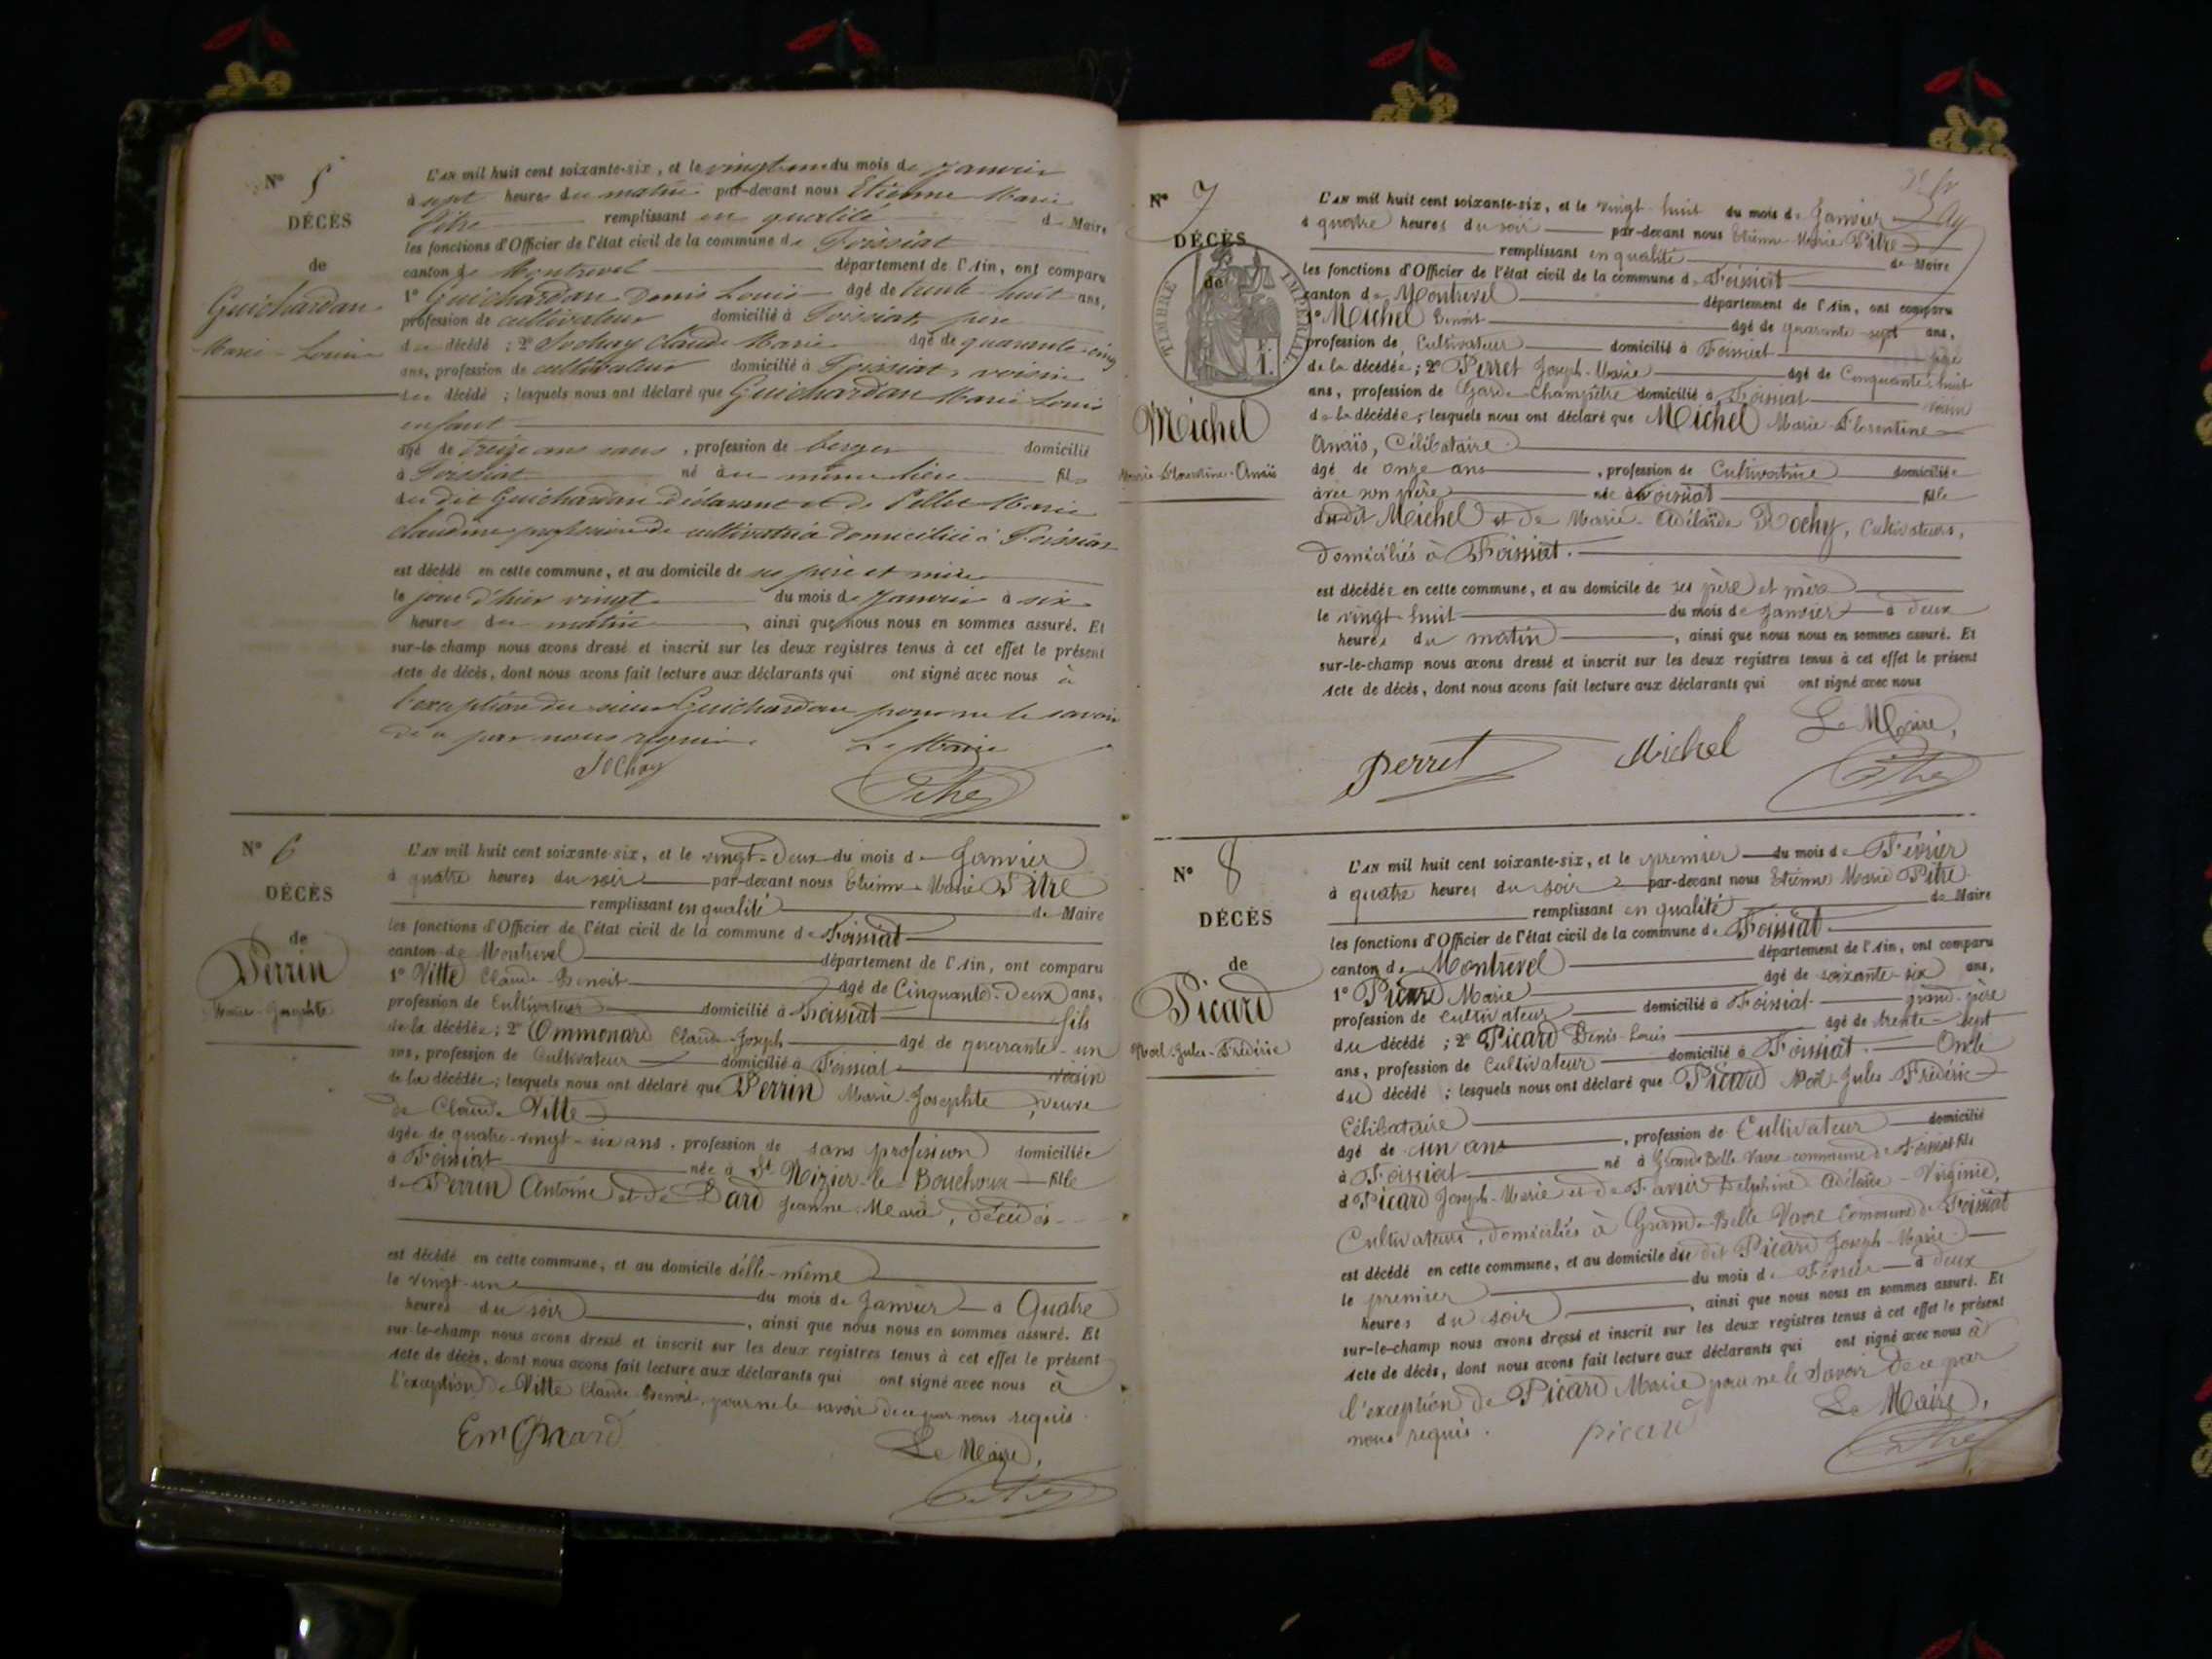 N° 5
DÉCÈS
de
Guichardan
Marie Louis
L'AN mil huit cent soixante-six, et le vingt un du mois de Janvier
à sept heures du matin par-devant nous Etienne Marie
Pitre remplissant en qualité de Maire
les fonctions d'Officier de l'état civil de la commune de Foissiat
canton de Montrevel département de l'Ain, ont comparu
1° Guichardan Denis Louis âgé de trente huit ans,
profession de cultivateur domicilié à Foissiat, père
du décédé ; 2° Sochay Claude Marie âgé de quarante-cinq
ans, profession de cultivateur domicilié à Foissiat, voisin
du décédé ; lesquels nous ont déclaré que Guichardan Marie Louis
enfant
âgé de treize ans, profession de berger domicilié
à Foissiat né au même lieu fils
du dit Guichardan déclarant et de Pellet Marie
claudine profession de cultivatrice domicilié à Foissiat
est décédé en cette commune, et au domicile de ses père et mère
le jour d'hier vingt du mois de Janvier à six
heures du matin, ainsi que nous nous en sommes assuré. Et
sur-le-champ nous avons dressé et inscrit sur les deux registres tenus à cet effet le présent
Acte de décès, dont nous avons fait lecture aux déclarants qui ont signé avec nous à
l'exception du sieur Guichardan pour ne le savoir
de ce par nous requis. Le Maire
Sochay
Pitre
N° 6
DÉCÈS
de
Perrin
Marie-Josephte
L'AN mil huit cent soixante-six, et le vingt-deux du mois de Janvier
à quatre heures du soir par-devant nous Etienne Marie Pitre
remplissant en qualité de Maire
les fonctions d'Officier de l'état civil de la commune de Foissiat
canton de Montrevel département de l'Ain, ont comparu
1° Vitte Claude-Benoit âgé de Cinquante-Deux ans,
profession de Cultivateur domicilié à Foissiat fils
de la décédée ; 2° Ommonard Claude-Joseph âgé de quarante-un
ans, profession de Cultivateur domicilié à Foissiat voisin
de la décédée ; lesquels nous ont déclaré que Perrin Marie-Josephte, veuve
de Claude Vitte
âgée de quatre-vingt-six ans, profession de sans profession domiciliée
à Foissiat née à St Nizier-le-Bouchoux fille
de Perrin Antoine et de Dard Jeanne-Marie, décédés
est décédé en cette commune, et au domicile d'elle-même
le vingt-un du mois de Janvier à Quatre
heures du soir, ainsi que nous nous en sommes assuré. Et
sur-le-champ nous avons dressé et inscrit sur les deux registres tenus à cet effet le présent
Acte de décès, dont nous avons fait lecture aux déclarants qui ont signé avec nous à
l'exception de Vitte Claude-Benoit, pour ne le savoir de ce par nous requis.
Le Maire,
Pitre
N° 7
DÉCÈS
de
TIMBRE IMPERIAL
Michel
Marie-Florentine-Anaïs
L'AN mil huit cent soixante-six, et le vingt-huit du mois de Janvier
à quatre heures du soir par-devant nous Etienne-Marie Pitre
remplissant en qualité de Maire
les fonctions d'Officier de l'état civil de la commune de Foissiat
canton de Montrevel département de l'Ain, ont comparu
1° Michel Benoit âgé de quarante-sept ans,
profession de Cultivateur domicilié à Foissiat père
de la décédée ; 2° Perret Joseph-Marie âgé de Cinquante-huit
ans, profession de Garde-Champêtre domicilié à Foissiat voisin
de la décédée ; lesquels nous ont déclaré que Michel Marie-Florentine
Anaïs, Célibataire
âgé de onze ans, profession de Cultivatrice domiciliée
avec son père née à Foissiat fille
du dit Michel et de Marie-Adélaïde Rochy, Cultivateurs,
Domiciliés à Foissiat.
est décédée en cette commune, et au domicile de ses père et mère
le vingt-huit du mois de Janvier à deux
heures du matin, ainsi que nous nous en sommes assuré. Et
sur-le-champ nous avons dressé et inscrit sur les deux registres tenus à cet effet le présent
Acte de décès, dont nous avons fait lecture aux déclarants qui ont signé avec nous
Le Maire,
Perret Michel Pitre
N° 8
DÉCÈS
de
Picard
Noël-Jules-Frédéric
L'AN mil huit cent soixante-six, et le premier du mois de Février
à quatre heures du soir par-devant nous Etienne Marie Pitre
remplissant en qualité de Maire
les fonctions d'Officier de l'état civil de la commune de Foissiat
canton de Montrevel département de l'Ain, ont comparu
1° Picard Marie âgé de soixante-six ans,
profession de Cultivateur domicilié à Foissiat grand-père
du décédé ; 2° Picard Denis-Louis âgé de trente-sept
ans, profession de Cultivateur domicilié à Foissiat. Oncle
du décédé ; lesquels nous ont déclaré que Picard Noël-Jules-Frédéric
Célibataire
âgé de un ans, profession de Cultivateur domicilié
à Foissiat né à Grande Belle Vavre commune de Foissiat fils
d Picard Joseph-Marie et de Favier Delphine Adélaïde-Virginie,
Cultivateurs, domiciliés à Grande-Belle Vavre Commune de Foissiat
est décédé en cette commune, et au domicile du dit Picard Joseph-Marie
le premier du mois de Février à deux
heures du soir, ainsi que nous nous en sommes assuré. Et
sur-le-champ nous avons dressé et inscrit sur les deux registres tenus à cet effet le présent
Acte de décès, dont nous avons fait lecture aux déclarants qui ont signé avec nous à
l'exception de Picard Marie pour ne le savoir de ce par
nous requis. picard Le Maire,
Pitre